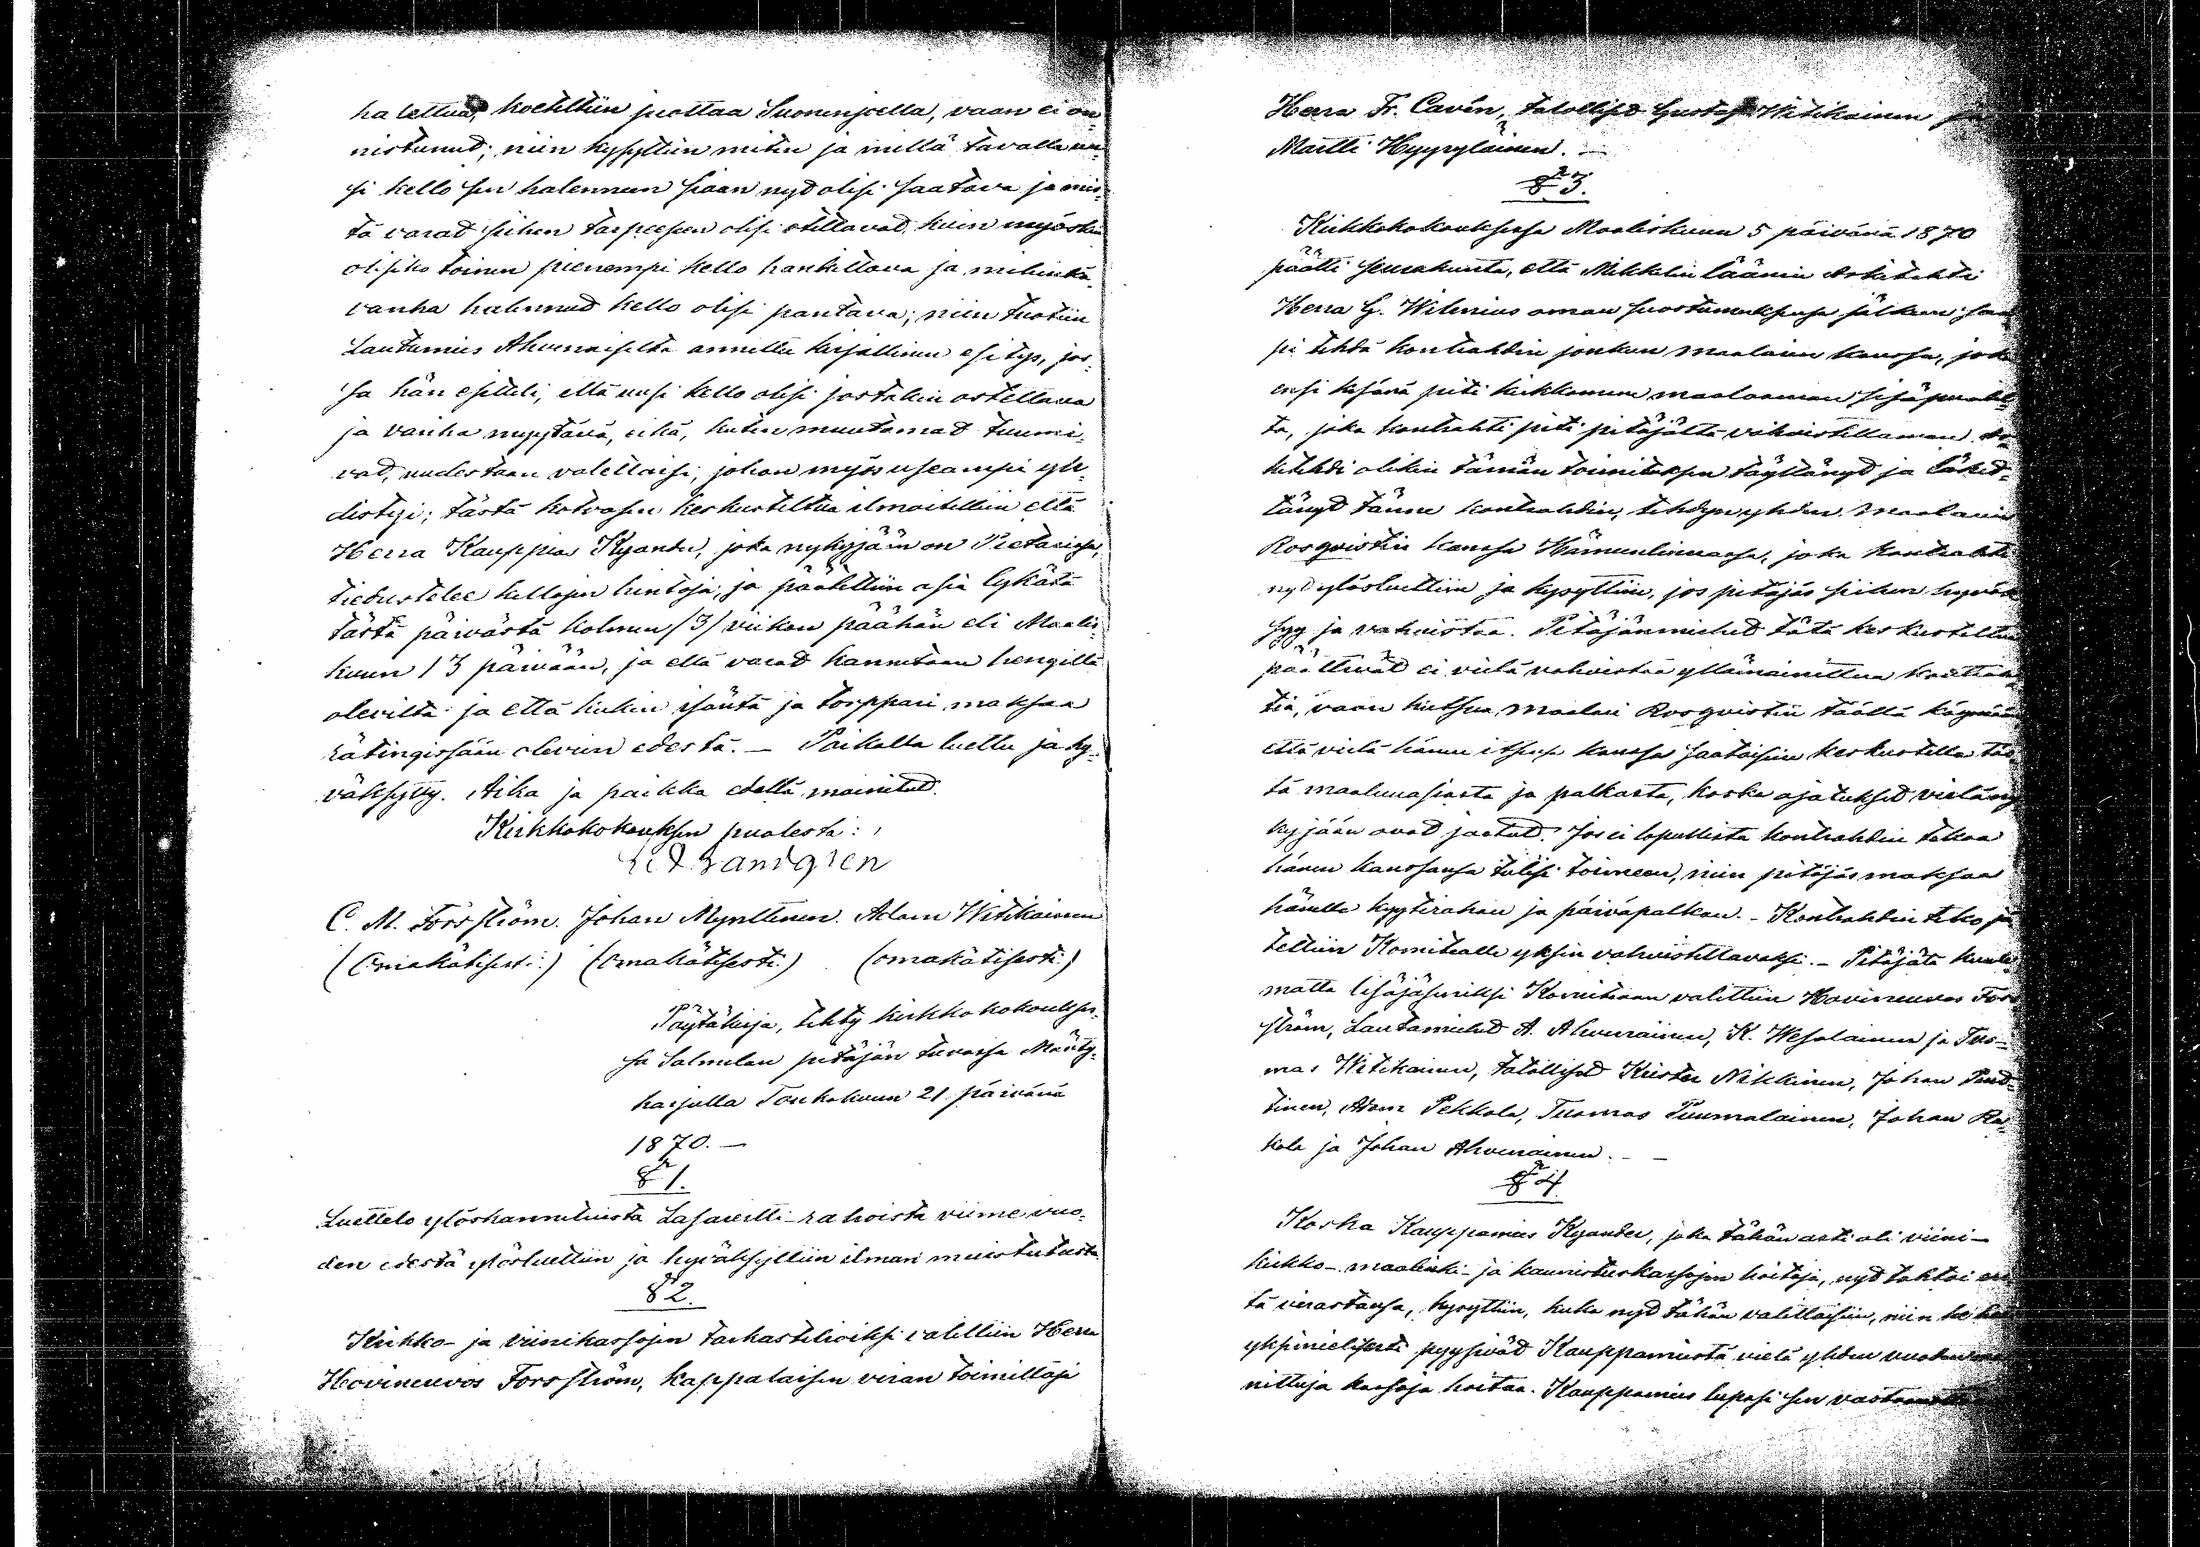 halettua, koetettiin juottaa Suonenjoella, vaan ei on-
nistunud; niin kysyttiin miten ja millä tavalla uu-
si kello sen halennen siaan nyd olisi saatava ja mis-
tä varad siihen tarpeesen olisi otettavad, kuin myöskin
olisiko toinen pienempi kello hankittava ja mihinkä
vanha halennud kello olisi pantava; niin tuotiin
Lautamies Ahvenaiselta annettu kirjallinen esitys, jos-
sa hän esitteli, että uusi kello olisi jostakin ostettava
ja vanha myytävä, eikä, kuten muutamad tuumi-
vad, uudestaan valettaisi, johon myös useampi yh-
distyi; tästä kotvasen keskusteltua ilmoitettiin että
Herra Kauppias Kyander, joka nykyjään on Pietarissa,
tiedustelee kellojen hintoja, ja päätettiin asia lykätä
tästä päivästä kolmen /3/ viikon päähän eli Maalis-
kuun 13 päivään, ja että varad kannetaan hengiltä
olevilta ja että kukin isäntä ja torppari maksaa
rätingissään olevien edestä. — Paikalla luettu ja hy-
väksytty. Aika ja paikka edellä mainitud.
Kirkkokokouksen puolesta:
C. M. Forsström. Johan Mynttinen. Adam Witikainen
(Omakätisesti.) (Omakätisesti.) (omakätisesti.)
Pöytäkirja, tehty kirkkokokoukses-
sa Salmelan pitäjän tuvassa Mänty-
harjulla Toukokuun 21 päivänä
1870. —
§ 1.
Luettelo ylöskannetuista Lasaretti-rahoista viime vuo-
den edestä ylösluettiin ja hyväksyttiin ilman muistutusta
§ 2.
Kirkko- ja viinikassojen tarkastelioiksi valittiin Herra
Hovineuvos Forsström, kappalaisen viran toimittaja
Herra Fr. Cavén, talollised Gustaf Witikainen ja
Martti Hyyryläinen. —
§ 3.
Kirkkokokouksessa Maaliskuun 5 päivänä 1870
päätti seurakunta, että Mikkelin läänin Arkitehti
Herra G. Wilenius oman suostumuksensa jälkeen saa-
pi tehdä kontrahdin jonkun maalarin kanssa, joka
ensi kesänä piti kirkkomme maalaaman sisäpuolel-
ta, joka kontrahti piti pitäjältä vahvistettaman. Ar-
kitehdi olikin tämän toimituksen täyttänyd ja lähet-
tänyd tänne kontrahdin, tehdyn yhden Maalarin
Rosqvistin kanssa Hämeenlinnassa, joka kontrahti
nyd ylösluettiin ja kysyttiin, jos pitäjäs siihen hyväk-
syy ja vahvistaa. Pitäjänmiehed tätä keskusteltua
päättivät ei vielä vahvistaa yllämainittua kontrah-
tia, vaan kutsua Maalari Rosqvistin täällä käymään
että vielä hänen itsensä kanssa saataisiin keskustella täs-
tä maalausasiasta ja palkasta, koska ajatuksed vielä ny-
kyjään ovad jaetud. Jos ei lopullista kontrahdin tekoa
hänen kanssansa tulisi toimeen, niin pitäjäs maksaa
hänelle kyytirahan ja päiväpalkan. — Kontrahdin teko jä-
tettiin Komitealle yksin vahvistettavaksi. — Pitäjätä kuule-
matta lisäjäseniksi Komiteaan valittiin Hovineuvos Fors-
ström, Lautamiehed A. Ahvenainen, K. Wesalainen ja Tuo-
mas Witikainen, talollised Krister Nikkinen, Johan Pent-
tinen, Adam Pekkola, Tuomas Puumalainen, Johan Ra-
kola ja Johan Ahvenainen. —
§ 4.
Koska Kauppamies Kyander, joka tähän asti oli viini-
kirkko- maalinki- ja kaunistuskassojen hoitaja, nyd tahtoi ero-
ta virastansa, kysyttiin, kuka nyd tähän valittaisiin, niin he
yksimielisesti pyysiväd Kauppamiestä vielä yhden vuoden
nittuja kassoja hoitaa. Kauppamies lupasi sen vastaanottaa